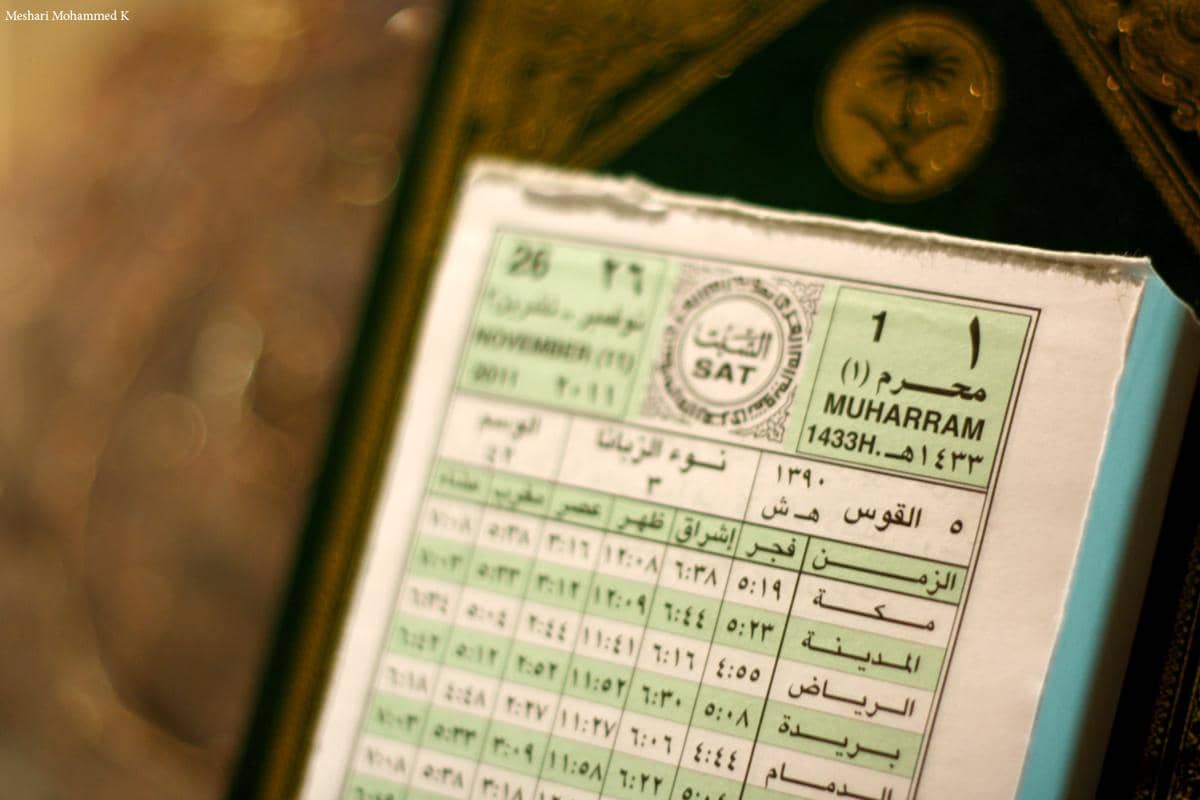 Meshari Mohammed K
26 ٢٦
نوفمبر - تشرين٢
NOVEMBER (11)
2011 ٢٠١١
السَّبْت
SAT
1 ١
محرم (١)
MUHARRAM
1433H. ١٤٣٣هـ
الوسم
نوء الزبانا
٣
١٣٩٠
٥ القوس هـ ش
الزمن فجر إشراق ظهر عصر مغرب عشاء
مكة ٥:١٩ ٦:٣٨ ١٢:٠٨ ٣:١٦ ٥:٣٨ ٧:٠٨
المدينة ٥:٢٣ ٦:٤٤ ١٢:٠٩ ٣:١٢ ٥:٣٣ ٧:٠٣
الرياض ٤:٥٥ ٦:١٦ ١١:٤١ ٢:٤٤ ٥:٠٤ ٦:٣٤
بريدة ٥:٠٨ ٦:٣٠ ١١:٥٢ ٢:٥٢ ٥:١٢ ٦:٤٢
الدمام ٤:٤٤ ٦:٠٦ ١١:٢٧ ٢:٢٧ ٤:٤٨ ٦:١٨
٦:٢٢ ١١:٥٨ ٣:٠٩ ٥:٣٣ ٧:٠٣
٣:١٨ ٥:٣٨ ٧:٠٨